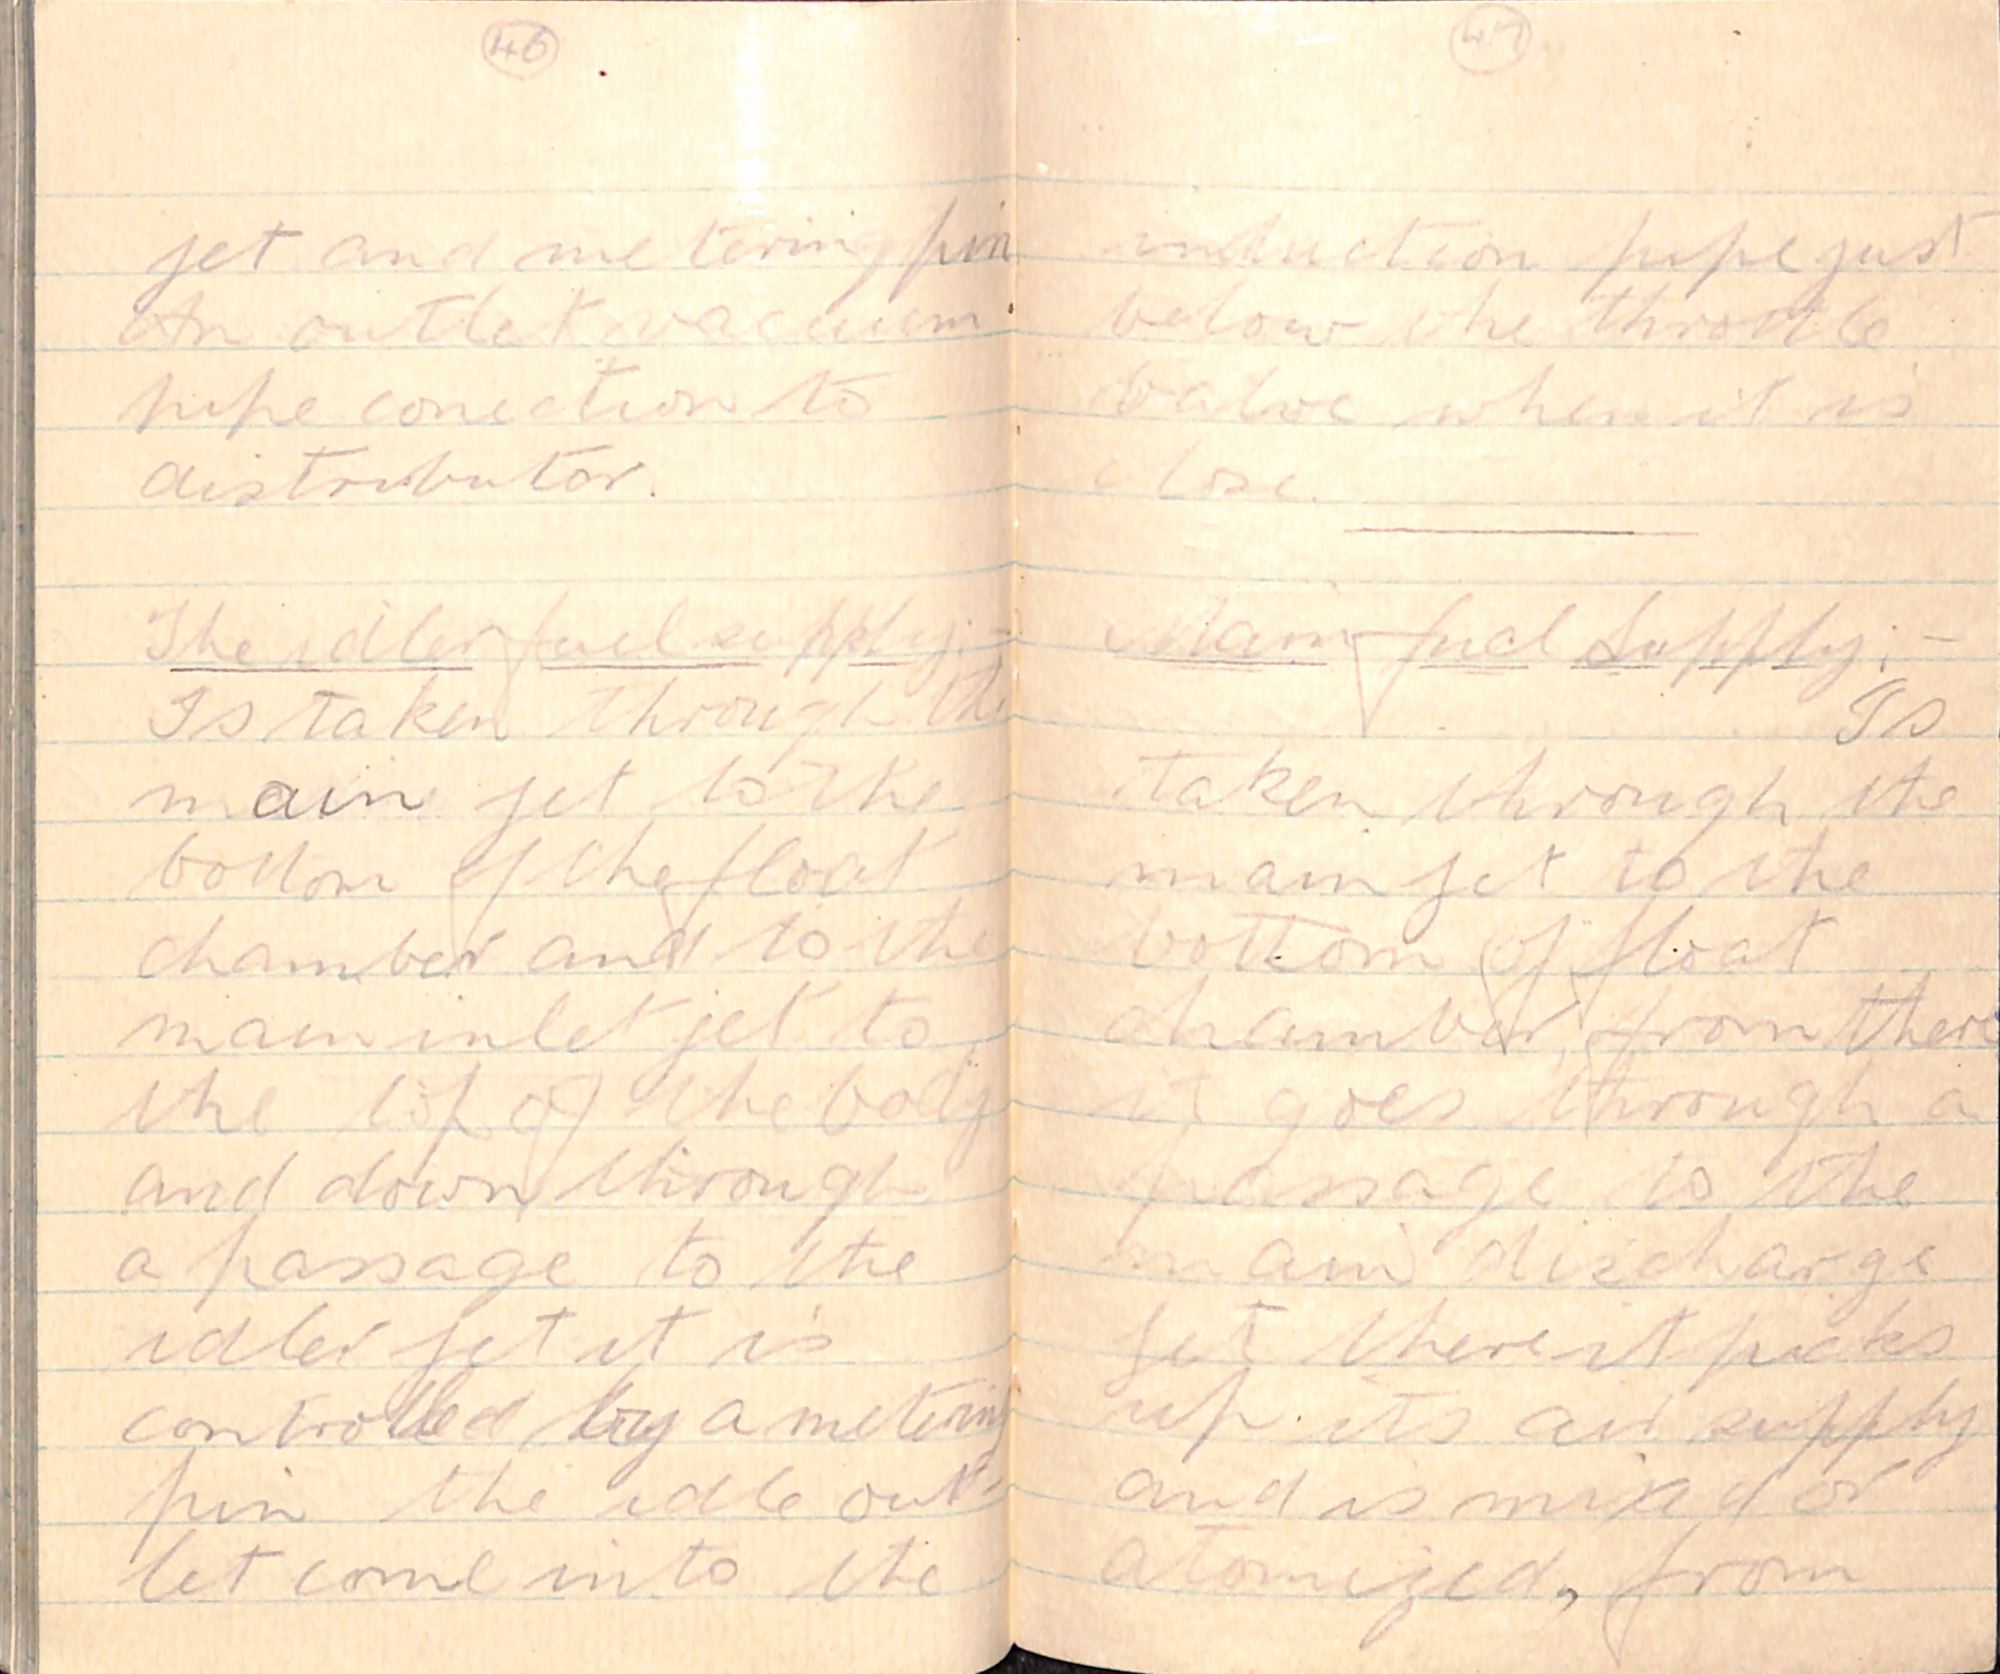 46
jet and metering pin
An outlet vacuum
pipe conection to
distributor.
The idler fuel supply:-
Is taken through the
main jet to the
bottom of the float
chamber and to the
main inlet jet to
the top of the body
and down through
a passage to the
idler jet it is
controlled by a metering
pin the idle out-
let come into the
47
induction pipe just
below the throttle
valve when it is
close.
Main fuel Supply:-
Is
taken through the
main jet to the
bottom of float
chamber, from there
it goes through a
passage to the
main discharge
jet there it picks
up its air supply
and is mixed or
atomized, from